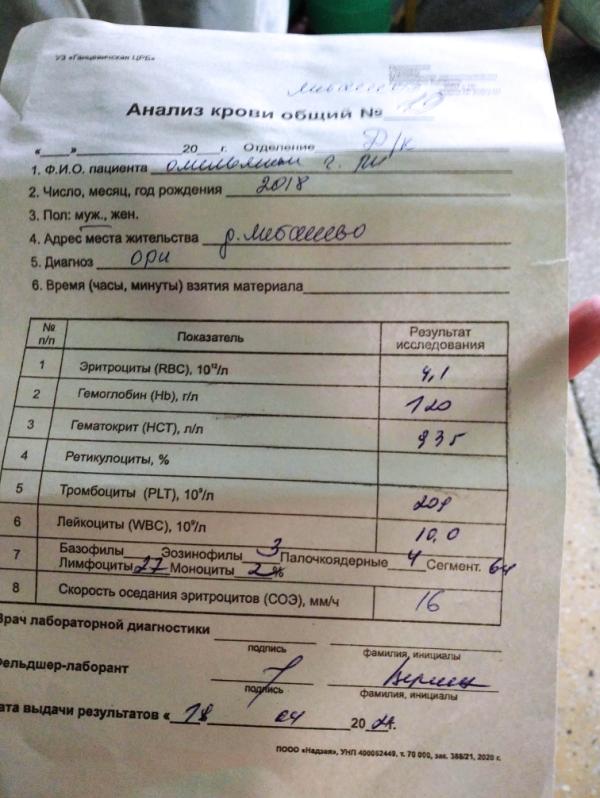 УЗ «Ганцевичская ЦРБ»
Анализ крови общий №
«___»__________ 20__г. Отделение
1. Ф.И.О. пациента
2. Число, месяц, год рождения 2018
3. Пол: муж., жен.
4. Адрес места жительства д. Любашево
5. Диагноз ОРИ
6. Время (часы, минуты) взятия материала
№ п/п Показатель Результат исследования
1 Эритроциты (RBC), 10¹²/л 4,1
2 Гемоглобин (Hb), г/л 120
3 Гематокрит (HCT), л/л
4 Ретикулоциты, %
5 Тромбоциты (PLT), 10⁹/л
6 Лейкоциты (WBC), 10⁹/л 10,0
7 Базофилы___Эозинофилы 3 Палочкоядерные 4 Сегмент. 64
Лимфоциты 27 Моноциты 2%
8 Скорость оседания эритроцитов (СОЭ), мм/ч 16
Врач лабораторной диагностики
подпись фамилия, инициалы
Фельдшер-лаборант
подпись фамилия, инициалы
Дата выдачи результатов « 18 04 20 24.
ПООО «Надзея», УНП 400052449, т. 70 000, зак. 388/21, 2020 г.